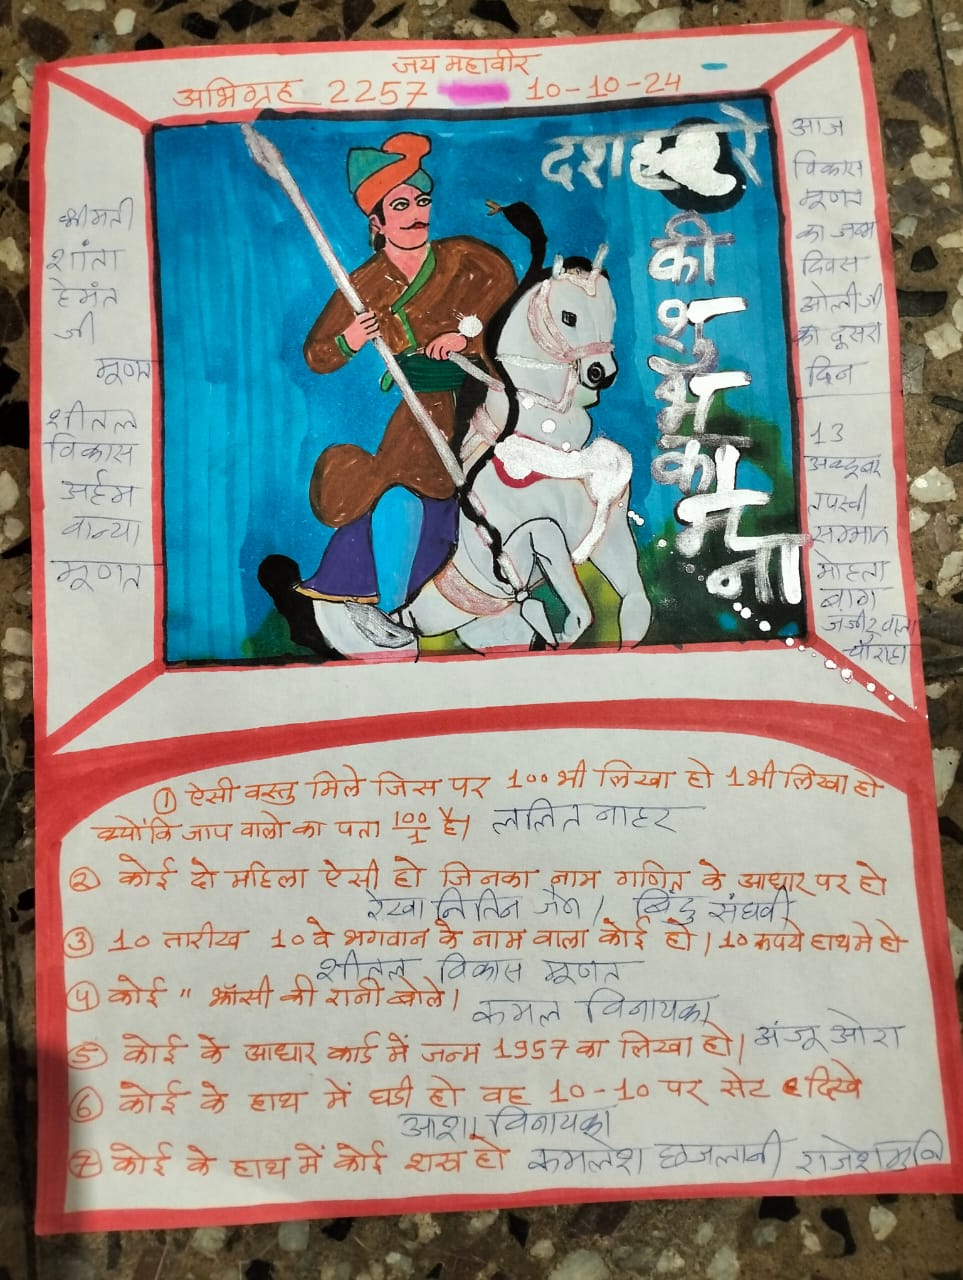 जय महावीर
अभिग्रह 2257 10-10-24
दशहरे
की
शु
भ
का
म
ना
श्रीमती
शांता
हेमंत
जी
मूणत
शीतल
विकास
अर्हम
वान्या
मूणत
आज
विकास
मूणत
का जन्म
दिवस
ओलीजी
का दूसरा
दिन
13
अक्टूबर
तपस्वी
सम्मान
मोहता
बाग
जंजीरवाला
चौराहा
① ऐसी वस्तु मिले जिस पर 100 भी लिखा हो 1 भी लिखा हो
क्योंकि जाप वालो का पता 100/1 है। ललित नाहर
② कोई दो महिला ऐसी हो जिनका नाम गणित के आधार पर हो
रेखा नितिन जैन / बिंदु संघवी
③ 10 तारीख 10 वे भगवान के नाम वाला कोई हो। 10 रूपये हाथ मे हो
शीतल विकास मूणत
④ कोई " झाँसी की रानी बोले। कमल विनायका
⑤ कोई के आधार कार्ड में जन्म 1957 का लिखा हो। अंजू ओरा
⑥ कोई के हाथ में घडी हो वह 10-10 पर सेट दिखे
आशा विनायका
⑦ कोई के हाथ में कोई शस्त्र हो कमलेश छजलानी राजेश मुनि